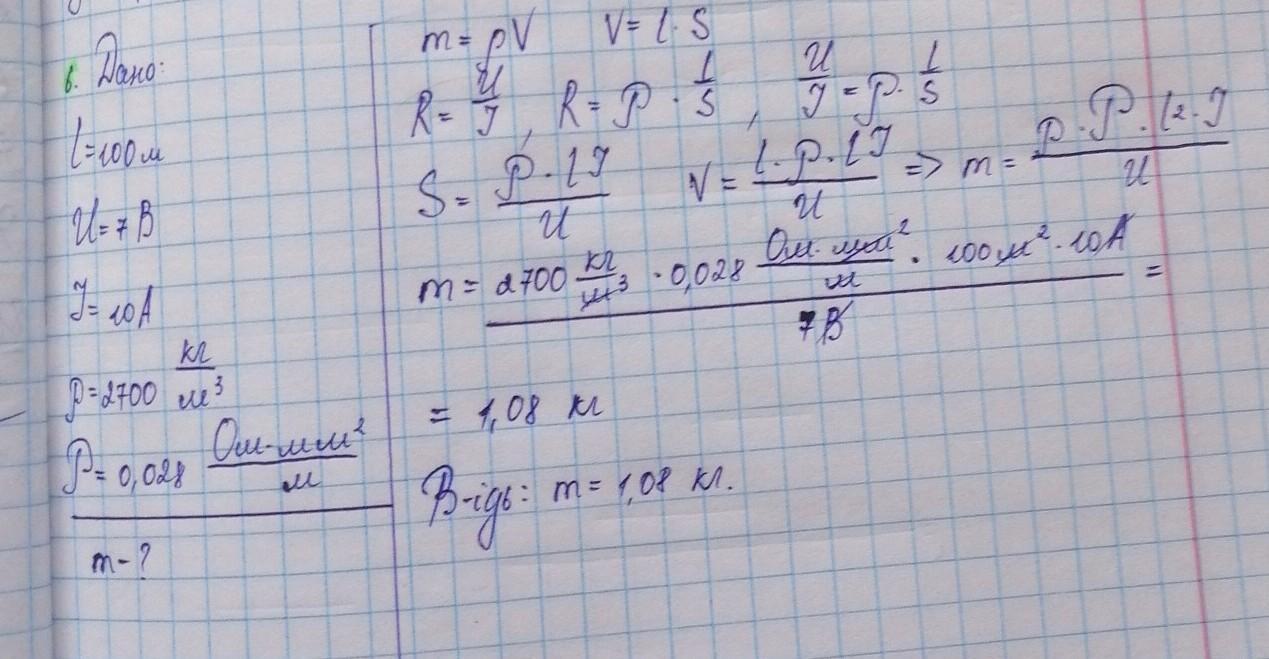 6. Дано:
l=100м
U=7В
I=10А
ρ=2700 кг/м³
ρ=0,028 Ом·мм²/м
m-?
m=ρV V=l·S
R=U/I, R=ρ·l/S, U/I=ρ·l/S
S=ρ·lI/U V=l·ρ·lI/U => m=ρ·ρ·l2·I/U
m=2700 кг/м³·0,028 Ом·мм²/м·100м²·10А/7В=
=1,08 кг
В-ідь: m=1,08 кг.